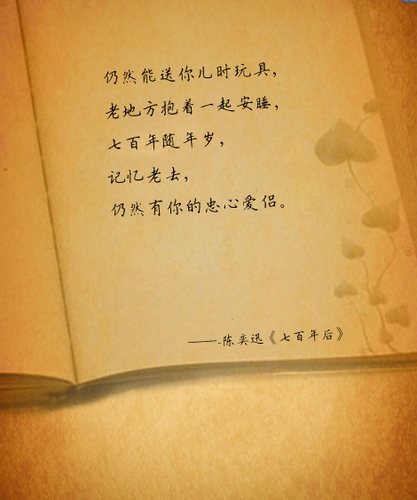 仍然能送你儿时玩具，
老地方抱着一起安睡，
七百年随年岁，
记忆老去，
仍然有你的忠心爱侣。
——陈奕迅《七百年后》